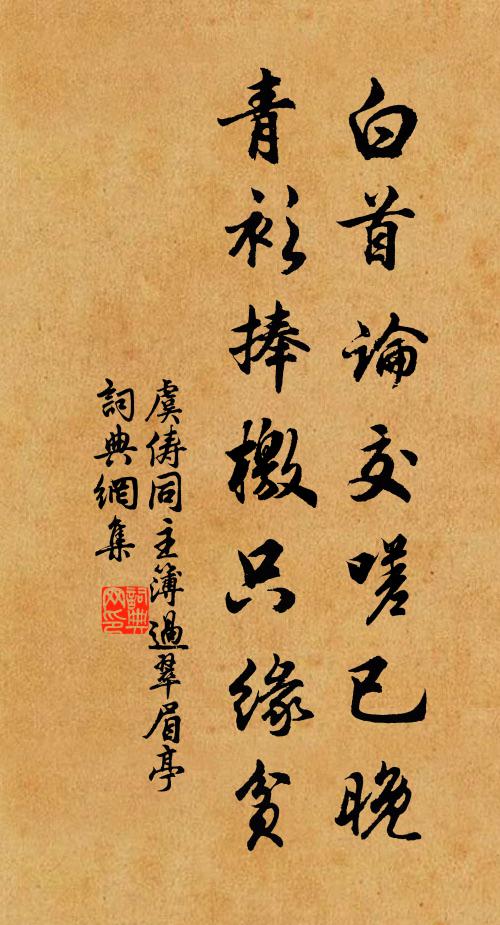 白首論交嗟已晚
青衫捧檄只緣貧
虞儔同主簿過翠眉亭
詞典網集
詞典網印